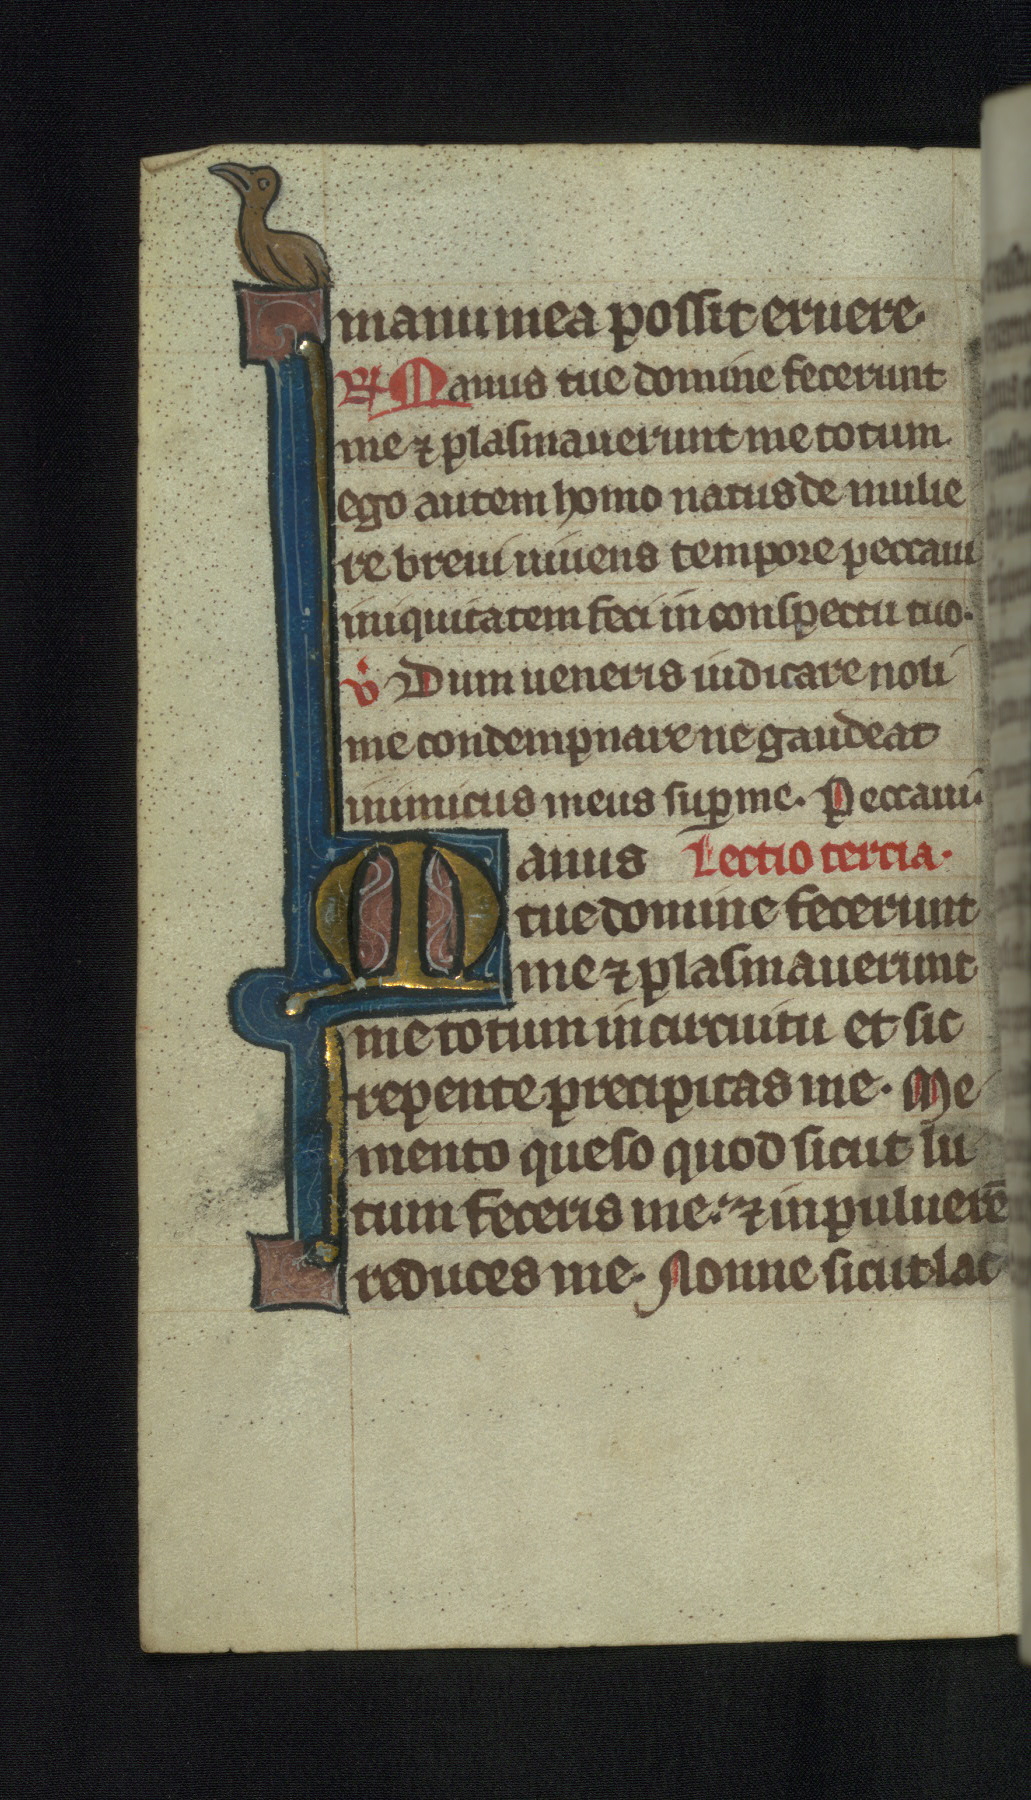 manu mea possit eruere.
℟ Manus tue domine fecerunt
me ⁊ plasmauerunt me totum
ego autem homo natus de mulie
re breui uiuens tempore peccaui
iniquitatem feci in conspectu tuo.
℣ Dum ueneris iudicare noli
me condempnare ne gaudeat
inimicus meus sup me. Peccaui.
Manus Lectio tercia.
tue domine fecerunt
me ⁊ plasmauerunt
me totum in circuitu et sic
repente precipitas me. Me
mento queso quod sicut lu
tum feceris me: ⁊ in puluerē
reduces me. Nonne sicut lac